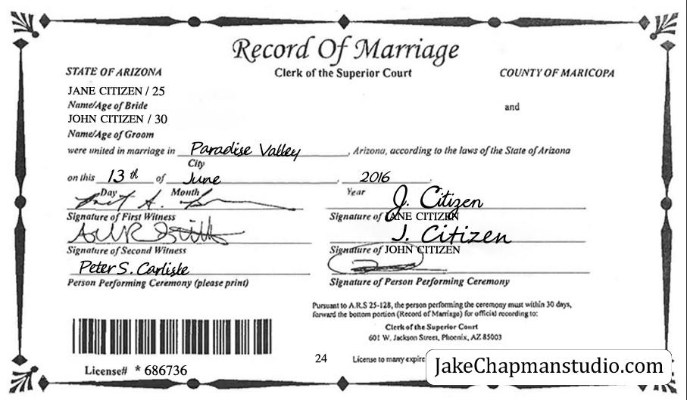 Record Of Marriage
STATE OF ARIZONA Clerk of the Superior Court COUNTY OF MARICOPA
JANE CITIZEN / 25
Name/Age of Bride and
JOHN CITIZEN / 30
Name/Age of Groom
were united in marriage in Paradise Valley , Arizona, according to the laws of the State of Arizona
City
on this 13th of June , 2016 .
Day Month Year
J. Citizen
Signature of First Witness Signature of JANE CITIZEN
J. Citizen
Signature of Second Witness Signature of JOHN CITIZEN
Peter S. Carlisle
Person Performing Ceremony (please print) Signature of Person Performing Ceremony
Pursuant to A.R.S 25-128, the person performing the ceremony must within 30 days,
forward the bottom portion (Record of Marriage) for official recording to:
Clerk of the Superior Court
601 W. Jackson Street, Phoenix, AZ 85003
24 License to marry expire
License# * 686736
JakeChapmanstudio.com